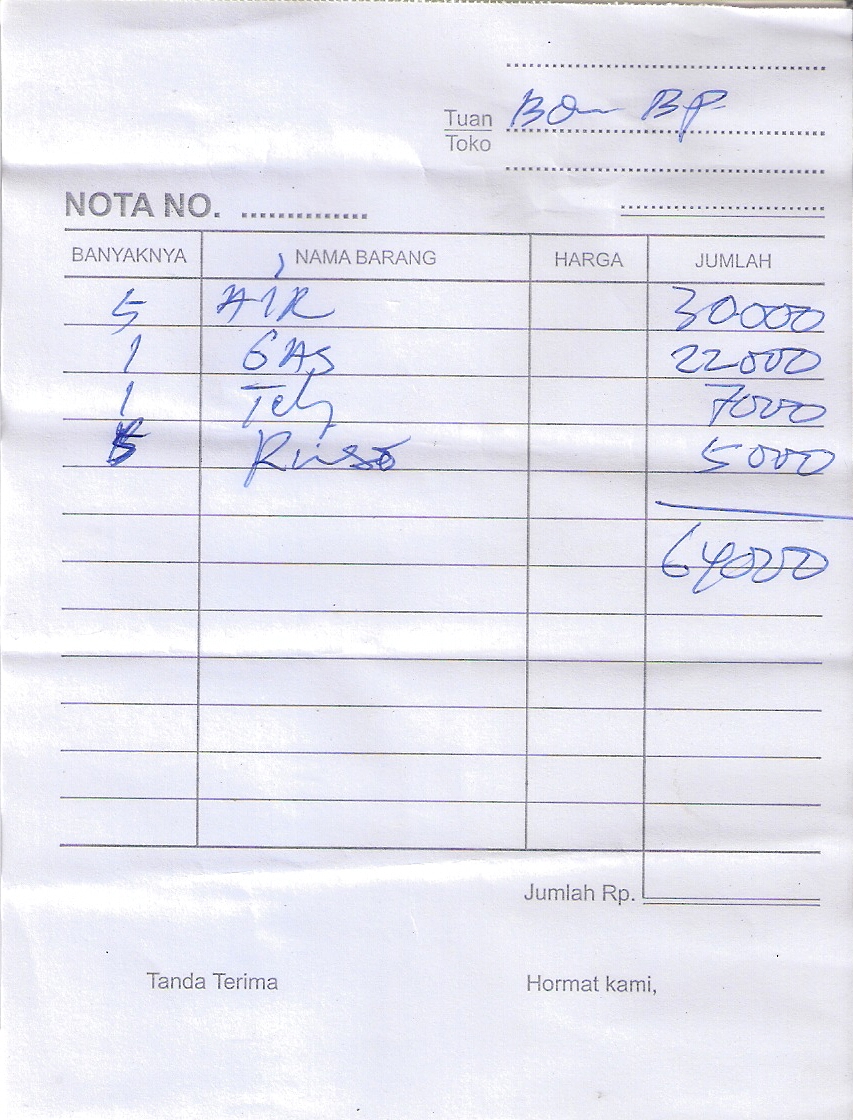 Tuan
Toko
Bon BP
NOTA NO. ..............
BANYAKNYA NAMA BARANG HARGA JUMLAH
5 AIR 30.000
1 GAS 22000
1 7000
5 Rinso 5000
64000
Jumlah Rp.
Tanda Terima Hormat kami,